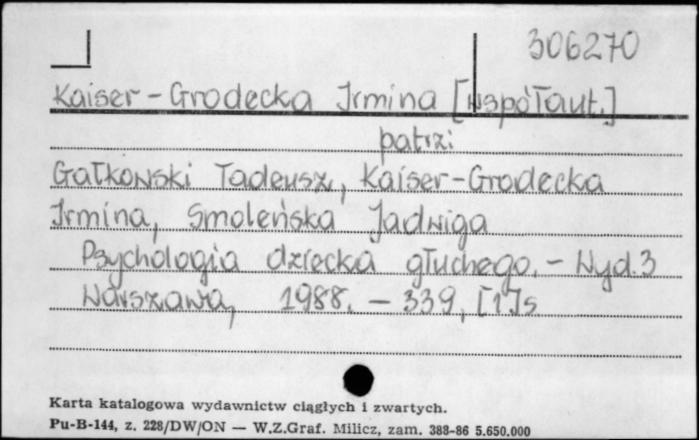 306270
Kaiser-Grodecka Irmina [współaut.]
patrzi
Gałkowski Tadeusz, Kaiser-Grodecka
Irmina, Smoleńska Jadwiga
Psychologia dziecka głuchego. - Wyd.3
Warszawa, 1988. - 339, [1]s
Karta katalogowa wydawnictw ciągłych i zwartych.
Pu-B-144, z. 228/DW/ON — W.Z.Graf. Milicz, zam. 388-86 5.650.000